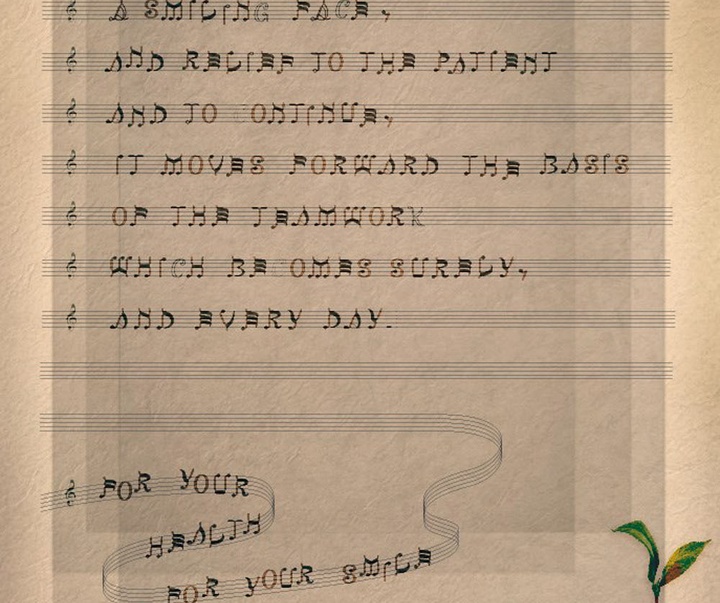 A SMILING FACE,
AND RELIEF TO THE PATIENT
AND TO CONTINUE,
IT MOVES FORWARD THE BASIS
OF THE TEAMWORK
WHICH BECOMES SURELY,
AND EVERY DAY.
FOR YOUR
HEALTH
FOR YOUR SMILE